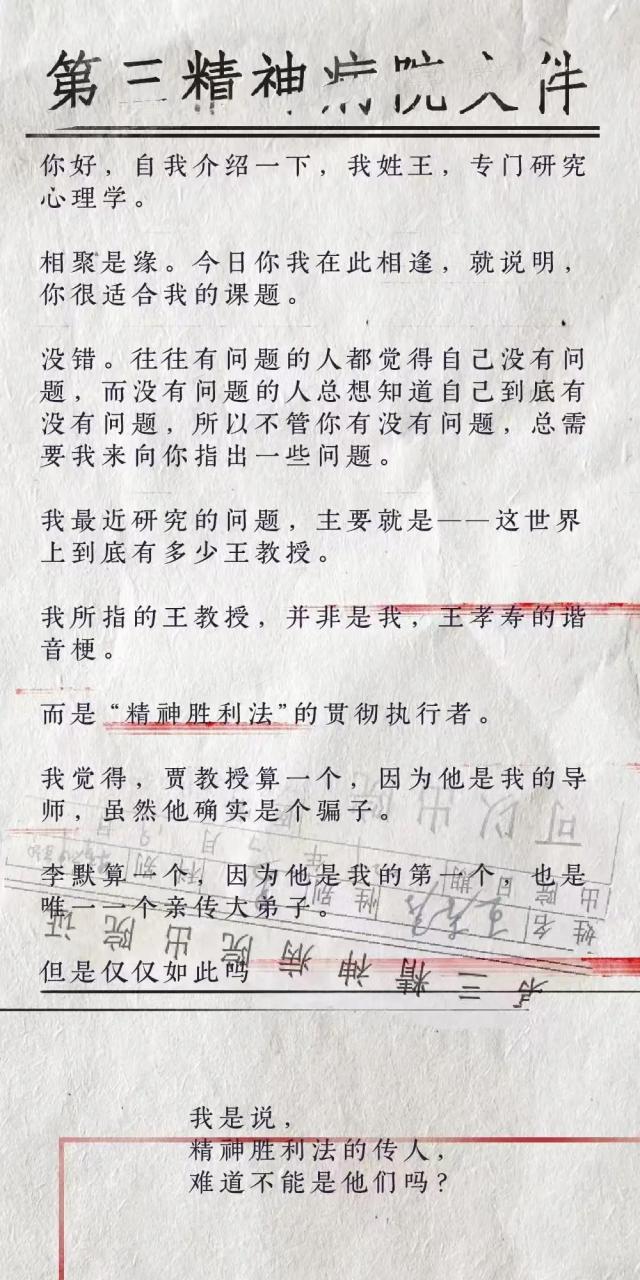 第三精神病院文件
你好，自我介绍一下，我姓王，专门研究
心理学。
相聚是缘。今日你我在此相逢，就说明，
你很适合我的课题。
没错。往往有问题的人都觉得自己没有问
题，而没有问题的人总想知道自己到底有
没有问题，所以不管你有没有问题，总需
要我来向你指出一些问题。
我最近研究的问题，主要就是——这世界
上到底有多少王教授。
我所指的王教授，并非是我，王孝寿的谐
音梗。
而是“精神胜利法”的贯彻执行者。
我觉得，贾教授算一个，因为他是我的导
师，虽然他确实是个骗子。
李默算一个，因为他是我的第一个，也是
唯一一个亲传大弟子。
但是仅仅如此吗
第三精神病院出院证
姓名
性别
科别
出院日期
年
月
日
可以出院
我是说，
精神胜利法的传人，
难道不能是他们吗？